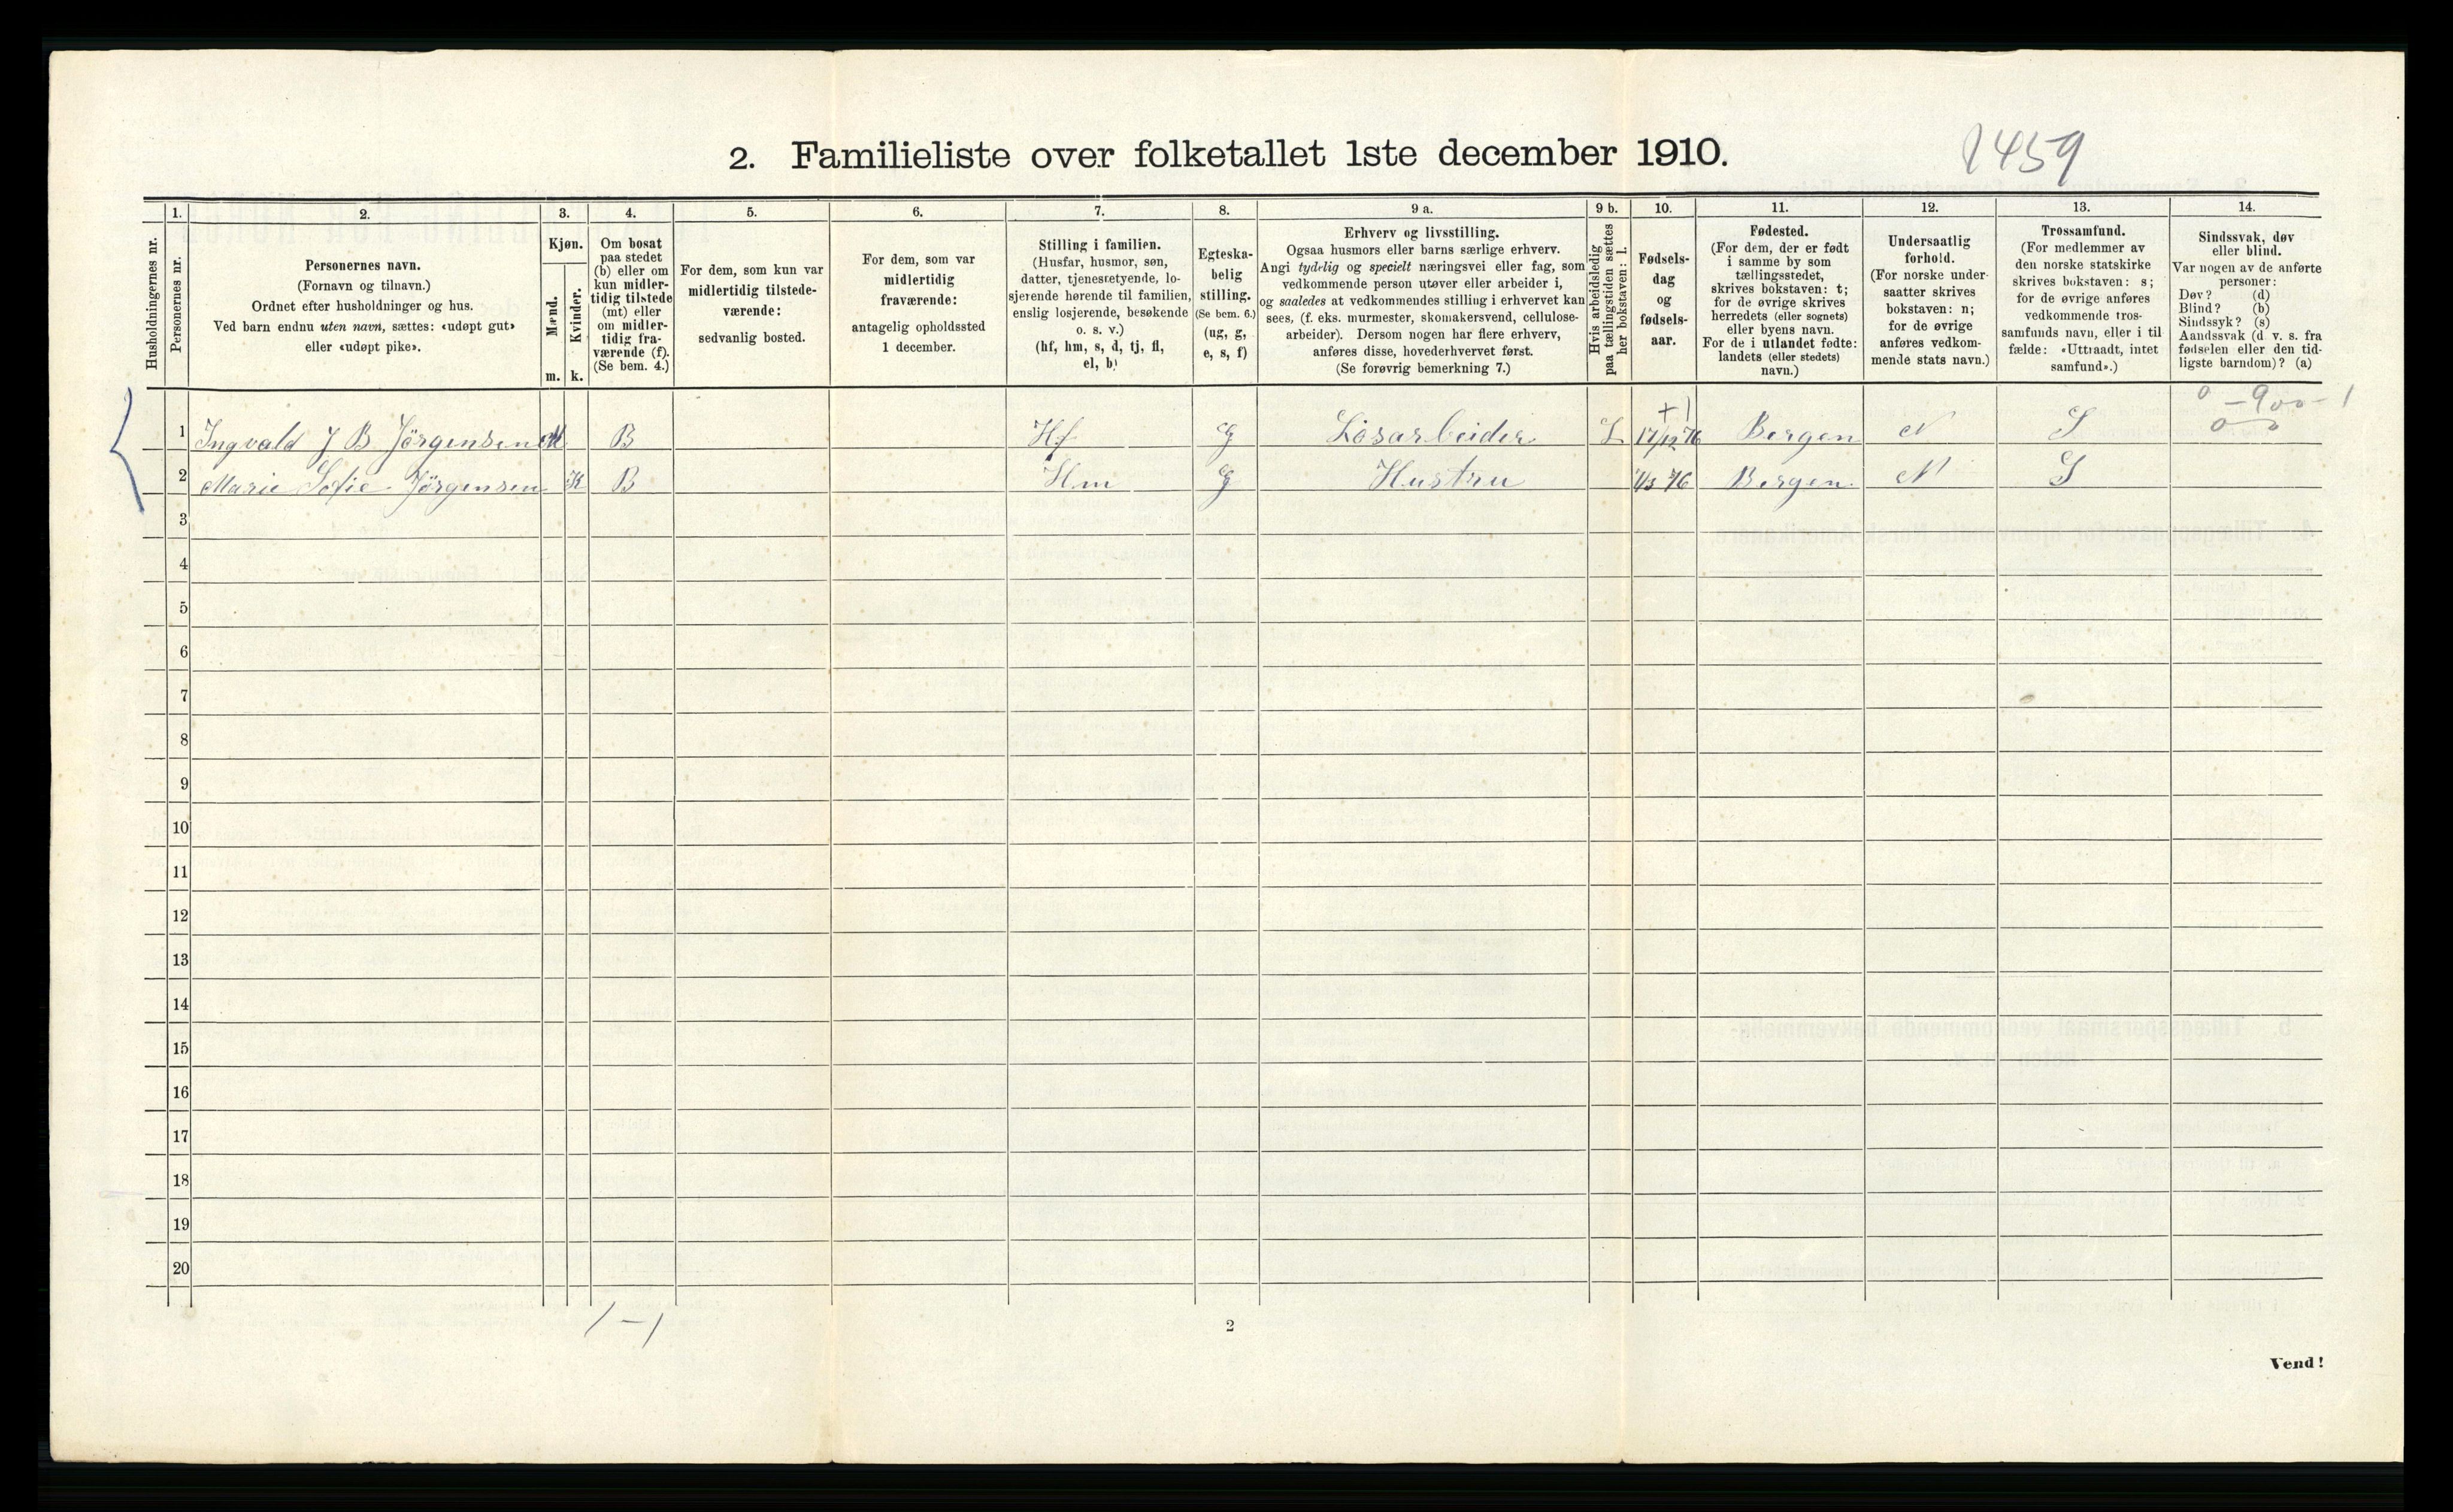 2. Familieliste over folketallet 1ste december 1910.
2459
Husholdningernes nr.
1.
Personernes nr.
2.
Personernes navn.
(Fornavn og tilnavn.)
Ordnet efter husholdninger og hus.
Ved barn endnu uten navn, sættes: «udøpt gut»
eller «udøpt pike».
3.
Kjøn.
Mænd.
Kvinder.
m. k.
4.
Om bosat
paa stedet
(b) eller om
kun midler-
tidig tilstede
(mt) eller
om midler-
tidig fra-
værende (f).
(Se bem. 4.)
5.
For dem, som kun var
midlertidig tilstede-
værende:
sedvanlig bosted.
6.
For dem, som var
midlertidig
fraværende:
antagelig opholdssted
1 december.
7.
Stilling i familien.
(Husfar, husmor, søn,
datter, tjenestetyende, lo-
sjerende hørende til familien,
enslig losjerende, besøkende
o. s. v.)
(hf, hm, s, d, tj, fl,
el, b)
8.
Egteska-
belig
stilling.
(Se bem. 6.)
(ug, g,
e, s, f)
9 a.
Erhverv og livsstilling.
Ogsaa husmors eller barns særlige erhverv.
Angi tydelig og specielt næringsvei eller fag, som
vedkommende person utøver eller arbeider i,
og saaledes at vedkommendes stilling i erhvervet kan
sees, (f. eks. murmester, skomakersvend, cellulose-
arbeider). Dersom nogen har flere erhverv,
anføres disse, hovederhvervet først.
(Se forøvrig bemerkning 7.)
9 b.
Hvis arbeidsledig
paa tællingstiden sættes
her bokstaven: l.
10.
Fødsels-
dag
og
fødsels-
aar.
11.
Fødested.
(For dem, der er født
i samme by som
tællingsstedet,
skrives bokstaven: t;
for de øvrige skrives
herredets (eller sognets)
eller byens navn.
For de i utlandet fødte:
landets (eller stedets)
navn.)
12.
Undersaatlig
forhold.
(For norske under-
saatter skrives
bokstaven: n;
for de øvrige
anføres vedkom-
mende stats navn.)
13.
Trossamfund.
(For medlemmer av
den norske statskirke
skrives bokstaven: s;
for de øvrige anføres
vedkommende tros-
samfunds navn, eller i til
fælde: «Uttraadt, intet
samfund».)
14.
Sindssvak, døv
eller blind.
Var nogen av de anførte
personer:
Døv? (d)
Blind? (b)
Sindssyk? (s)
Aandssvak (d. v. s. fra
fødselen eller den tid-
ligste barndom)? (a)
+1 0 - 900 - 1
0 0
1 Ingvald J B. Jörgensen M B Hf G Lösarbeider L 17/12 76 Bergen N S
2 Marie Sofie Jörgensen K B Hm G Hustru 1/3 76 Bergen. N S
3
4
5
6
7
8
9
10
11
12
13
14
15
16
17
18
19
20
1 - 1
2
Vend!